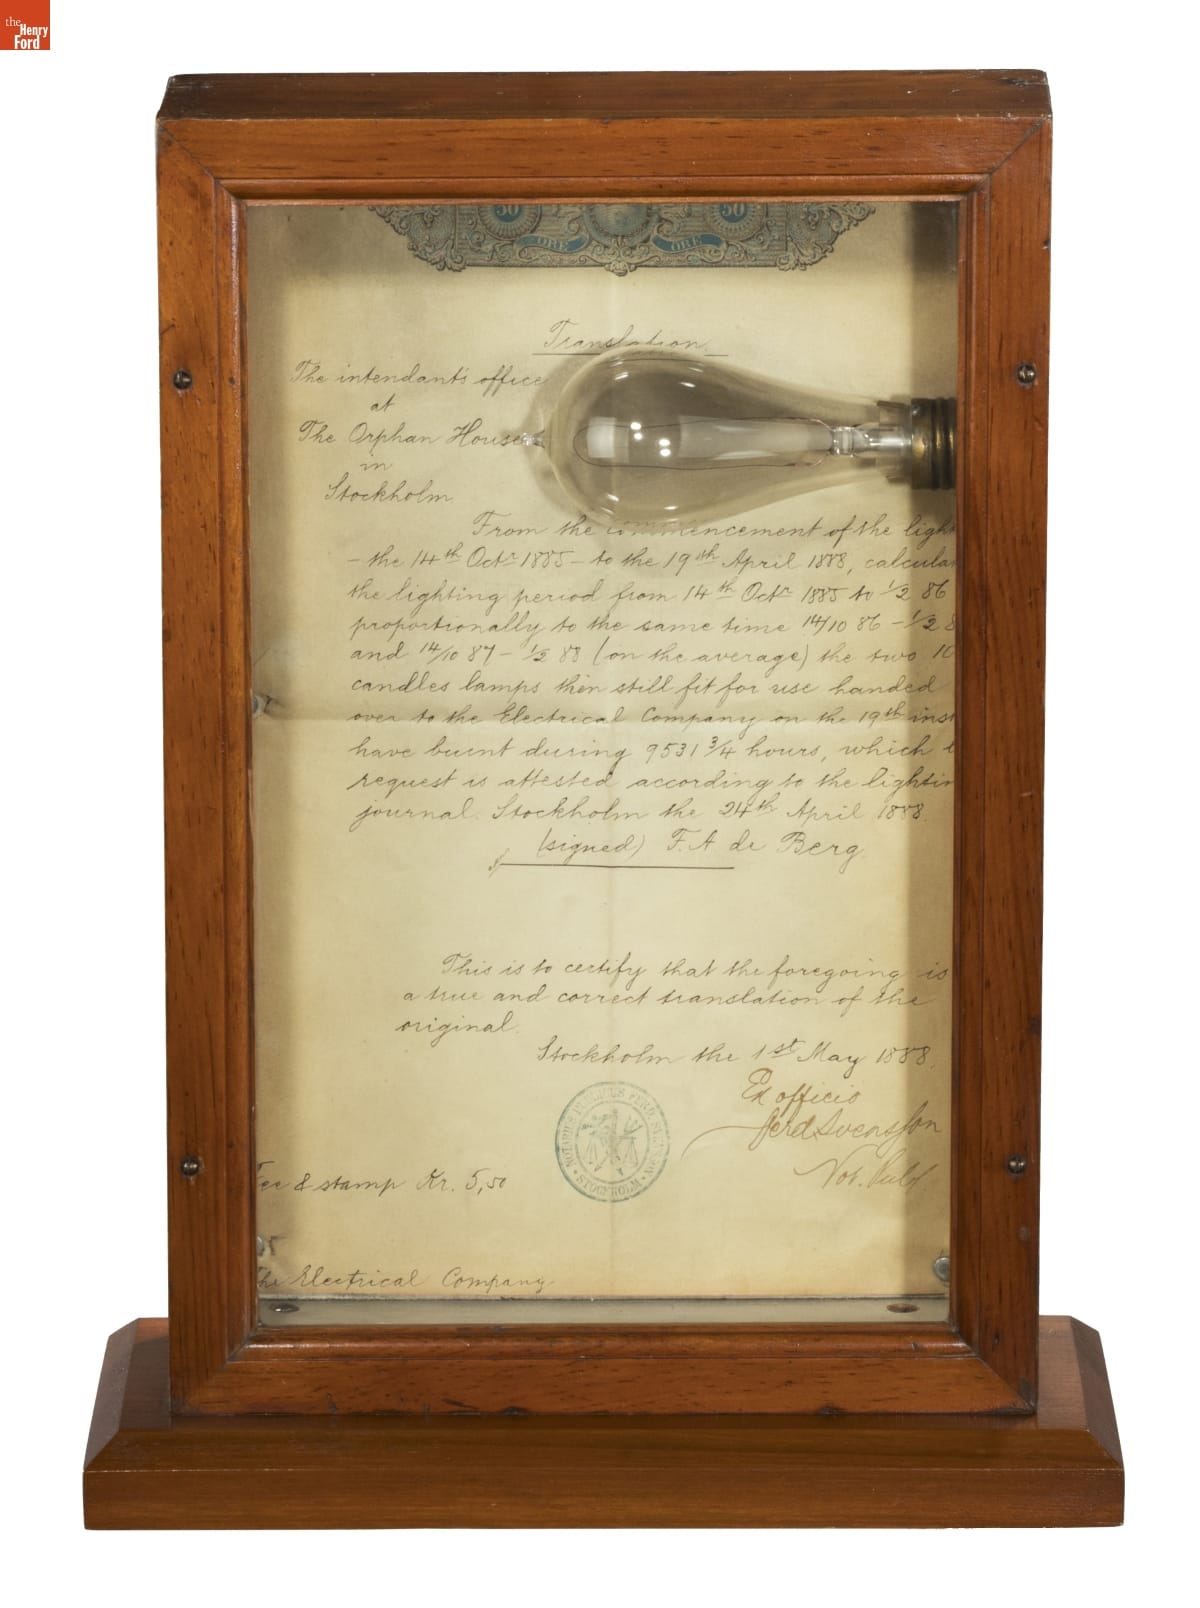 the
Henry
Ford
50 50
ORE ORE
Translation
The intendant's office
at
The Orphan House
in
Stockholm
From the commencement of the light
- the 14th Octr 1885 - to the 19th April 1888, calcula
the lighting period from 14th Octr 1885 to 1/2 86
proportionally to the same time 14/10 86 - 1/2 8
and 14/10 87 - 1/2 88 (on the average) the two 10
candles lamps then still fit for use handed
over to the Electrical Company on the 19th inst
have burnt during 9531 3/4 hours, which
request is attested according to the lightin
journal. Stockholm the 24th April 1888.
(signed) F. A de Berg
This is to certify that the foregoing is
a true and correct translation of the
original.
Stockholm the 1st May 1888.
Ex officio
Ferd Svensson
Not. Publ.
NOTARIUS PUBLICUS FERD. SVENSSON
STOCKHOLM
Fee & stamp Kr. 5,50
The Electrical Company